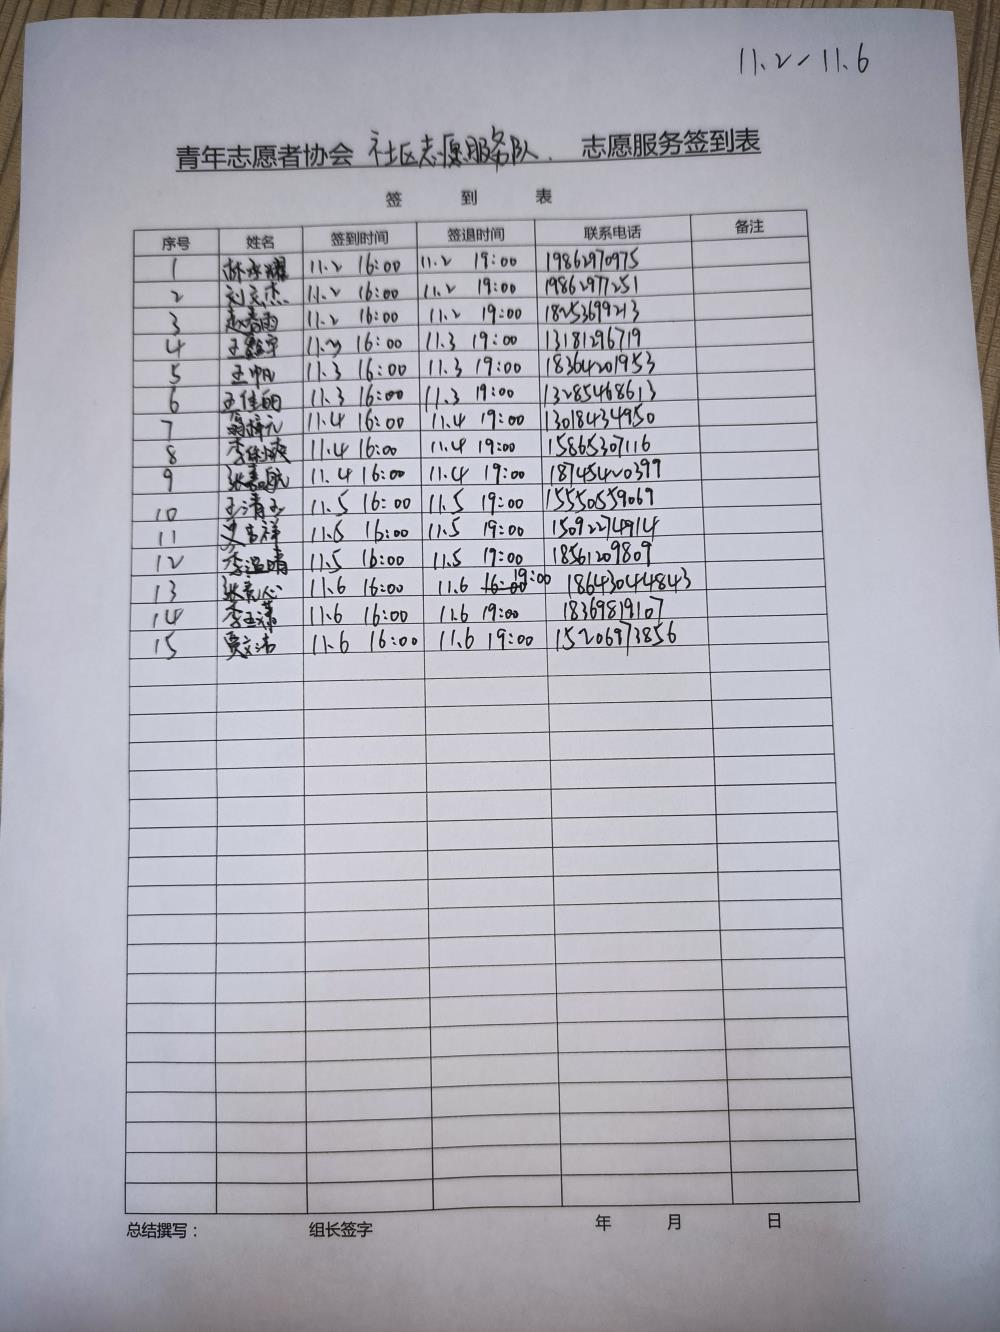 11.2-11.6
青年志愿者协会 社区志愿服务队. 志愿服务签到表
签 到 表
序号 姓名 签到时间 签退时间 联系电话 备注
1 11.2 16:00 11.2 19:00 19862970975
2 刘文杰 11.2 16:00 11.2 19:00 19862977251
3 赵春雨 11.2 16:00 11.2 19:00 18253699213
4 11.3 16:00 11.3 19:00 13181296719
5 王帅 11.3 16:00 11.3 19:00 18364201953
6 王佳明 11.3 16:00 11.3 19:00 13285468613
7 11.4 16:00 11.4 19:00 13018434950
8 11.4 16:00 11.4 19:00 15865307116
9 11.4 16:00 11.4 19:00 18745420399
10 王清玉 11.5 16:00 11.5 19:00 15550559069
11 11.5 16:00 11.5 19:00 15092274914
12 李温晴 11.5 16:00 11.5 19:00 18561209809
13 11.6 16:00 11.6 16:00 19:00 18643044843
14 李玉潇 11.6 16:00 11.6 19:00 18369819107
15 贾文洁 11.6 16:00 11.6 19:00 15206973856
总结撰写： 组长签字 年 月 日